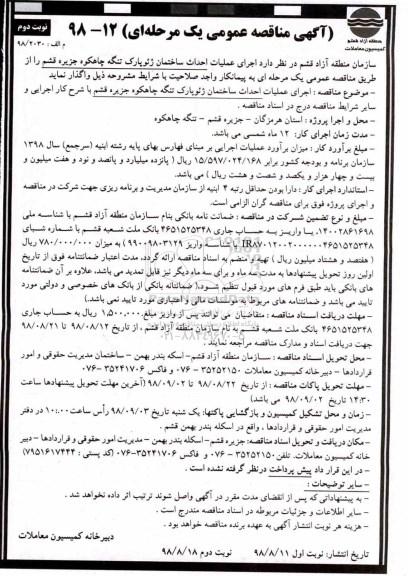 نوبت دوم
(آگهی مناقصه عمومی یک مرحله‌ای) ۱۲- ۹۸
م الف: ۹۸/۲۰۳۰
سازمان منطقه آزاد قشم
کمیسیون معاملات
سازمان منطقه آزاد قشم در نظر دارد اجرای عملیات احداث ساختمان ژئوپارک تنگه چاهکوه جزیره قشم را از
طریق مناقصه عمومی یک مرحله ای به پیمانکار واجد صلاحیت با شرایط مشروحه ذیل واگذار نماید
- موضوع مناقصه: اجرای عملیات احداث ساختمان ژئوپارک تنگه چاهکوه جزیره قشم با شرح کار اجرایی و
سایر شرایط مناقصه درج در اسناد مناقصه.
- محل و اجرا پروژه: استان هرمزگان - جزیره قشم - تنگه چاهکوه
- مدت زمان اجرای کار: ۱۲ ماه شمسی می باشد.
- مبلغ برآورد کار: میزان برآورد عملیات اجرایی بر مبنای فهارس بهای پایه رشته ابنیه (سرجمع) سال ۱۳۹۸
سازمان برنامه و بودجه کشور برابر ۱۵/۵۹۷/۰۲۴/۱۶۸ ریال (پانزده میلیارد و پانصد و نود و هفت میلیون و
بیست و چهار هزار و یکصد و شصت و هشت ریال) می باشد.
- استاندارد اجرای کار: دارا بودن حداقل رتبه ۴ ابنیه از سازمان مدیریت و برنامه ریزی جهت شرکت در مناقصه
و اجرای پروژه فوق برای مناقصه گران الزامی است.
- مبلغ و نوع تضمین شرکت در مناقصه: ضمانت نامه بانکی بنام سازمان منطقه آزاد قشم با شناسه ملی
۱۴۰۰۲۸۶۱۶۹۸، یا واریز به حساب جاری ۴۶۵۱۵۲۵۳۴۸ بانک ملت شعبه قشم با شماره شبای
IR۸۷۰۱۲۰۰۲۰۰۰۰۰۴۶۵۱۵۲۵۳۴۸ با شناسه واریز ۹۹۰۰۹۸۰۳۱۲۹ به میزان ۷۸۰/۰۰۰/۰۰۰ ریال
(هفتصد و هشتاد میلیون ریال) تهیه و منضم به اسناد مناقصه ارائه گردد، مدت اعتبار ضمانتنامه فوق از تاریخ
اولین روز تحویل پیشنهادها به مدت سه ماه و برای سه ماه دیگر نیز قابل تمدید می باشد، علاوه بر آن ضمانتنامه
های بانکی باید طبق فرم های مورد قبول تنظیم شود.(ضمانتنامه بانکی از بانک های خصوصی و دولتی مورد
تایید می باشد و ضمانتنامه های مربوط به موسسات مالی و اعتباری مورد تایید نمی باشد).
- مهلت دریافت اسناد مناقصه: متقاضیان می توانند پس از واریز مبلغ ۱,۵۰۰,۰۰۰ ریال به حساب جاری
۴۶۵۱۵۲۵۳۴۸ بانک ملت شعبه قشم به نام سازمان منطقه آزاد قشم، از تاریخ ۹۸/۰۸/۱۲ تا ۹۸/۰۸/۲۱
جهت دریافت اسناد و مدارک مناقصه مراجعه نمایند.
- محل تحویل اسناد مناقصه: سازمان منطقه آزاد قشم- اسکله بندر بهمن - ساختمان مدیریت حقوقی و امور
قراردادها - دبیرخانه کمیسیون معاملات ۳۵۲۵۲۱۵۰ - ۰۷۶ و فاکس ۳۵۲۴۱۷۰۶-۰۷۶
- مهلت تحویل پاکات مناقصه: از تاریخ ۹۸/۰۸/۲۲ تا ۹۸/۰۹/۰۲ (آخرین مهلت تحویل پیشنهادها ساعت
۱۴:۳۰ تاریخ ۹۸/۰۹/۰۲ می باشد)
- زمان و محل تشکیل کمیسیون و بازگشایی پاکتها: یک شنبه تاریخ ۹۸/۰۹/۰۳ رأس ساعت ۱۰:۰۰ در دفتر
مدیریت امور حقوقی و قراردادها، واقع در اسکله بندر بهمن قشم.
- مکان دریافت و تحویل اسناد مناقصه: جزیره قشم- اسکله بندر بهمن - مدیریت امور حقوقی و قراردادها - دبیر
خانه کمیسیون معاملات. تلفن ۳۵۲۵۲۱۵۰ - ۰۷۶ و فاکس ۳۵۲۴۱۷۰۶-۰۷۶ (کد پستی: ۷۹۵۱۶۱۷۴۴۴)
- در این قرار داد پیش پرداخت در نظر گرفته نشده است.
- سایر توضیحات:
- به پیشنهاداتی که پس از انقضای مدت مقرر در آگهی واصل شوند ترتیب اثر داده نخواهد شد.
- سایر اطلاعات و جزئیات مربوطه در اسناد مناقصه مندرج است.
- هزینه هر نوبت انتشار آگهی به عهده برنده مناقصه خواهد بود.
دبیرخانه کمیسیون معاملات
تاریخ انتشار: نوبت اول ۹۸/۸/۱۱ نوبت دوم ۹۸/۸/۱۸